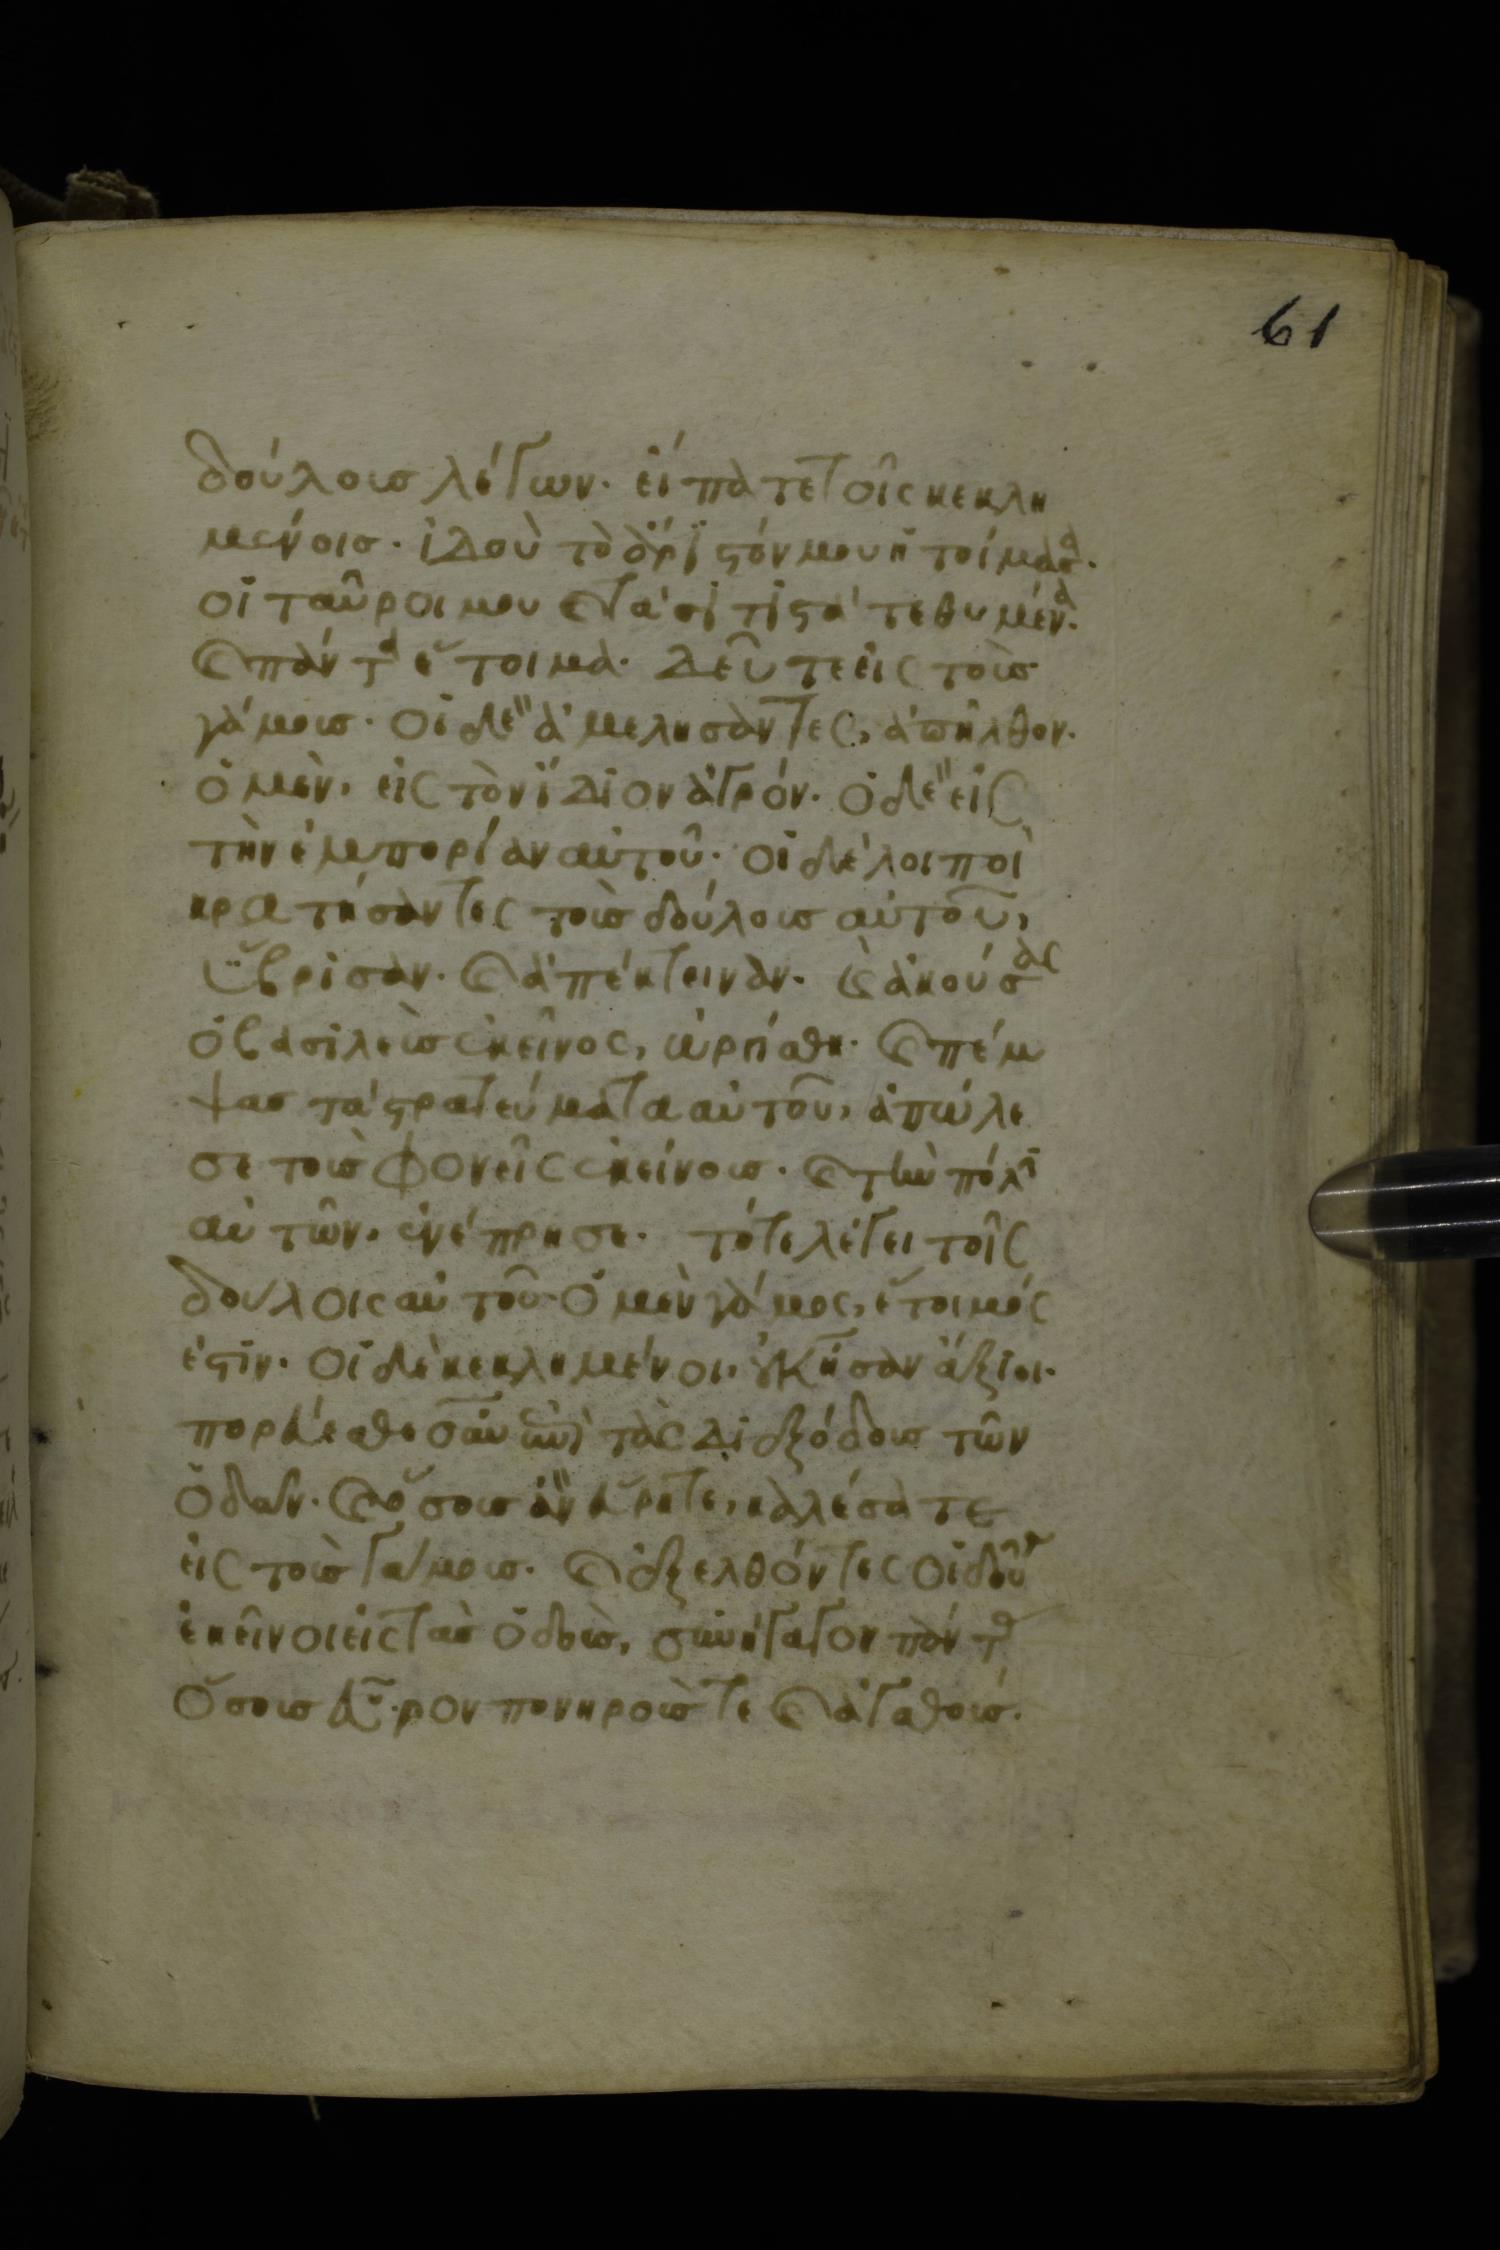 61
δούλους λέγων· εἴπατε τοῖς κεκλη
μένοις· ἰδοὺ τὸ ἄριστόν μου ἡτοίμασα·
οἱ ταῦροί μου καὶ τὰ σιτιστὰ τεθυμένα·
καὶ πάντα ἕτοιμα· δεῦτε εἰς τοὺς
γάμους· οἱ δὲ ἀμελήσαντες, ἀπῆλθον·
ὁ μὲν, εἰς τὸν ἴδιον ἀγρόν· ὁ δὲ εἰς
τὴν ἐμπορίαν αὐτοῦ· οἱ δὲ λοιποὶ
κρατήσαντες τοὺς δούλους αὐτοῦ,
ὕβρισαν· καὶ ἀπέκτειναν· καὶ ἀκούσας
ὁ βασιλεὺς ἐκεῖνος, ὠργίσθη· καὶ πέμ
ψας τὰ στρατεύματα αὐτοῦ, ἀπώλε
σε τοὺς φονεῖς ἐκείνους· καὶ τὴν πόλιν
αὐτῶν, ἐνέπρησε· τότε λέγει τοῖς
δούλοις αὐτοῦ· ὁ μὲν γάμος, ἕτοιμός
ἐστιν· οἱ δὲ κεκλημένοι, οὐκ ἦσαν ἄξιοι·
πορεύεσθε οὖν ἐπὶ τὰς διεξόδους τῶν
ὁδῶν· καὶ ὅσους ἂν εὕρητε, καλέσατε
εἰς τοὺς γάμους· καὶ ἐξελθόντες οἱ δοῦλοι
ἐκεῖνοι εἰς τὰς ὁδοὺς, συνήγαγον πάντας
ὅσους εὗρον πονηρούς τε καὶ ἀγαθούς·